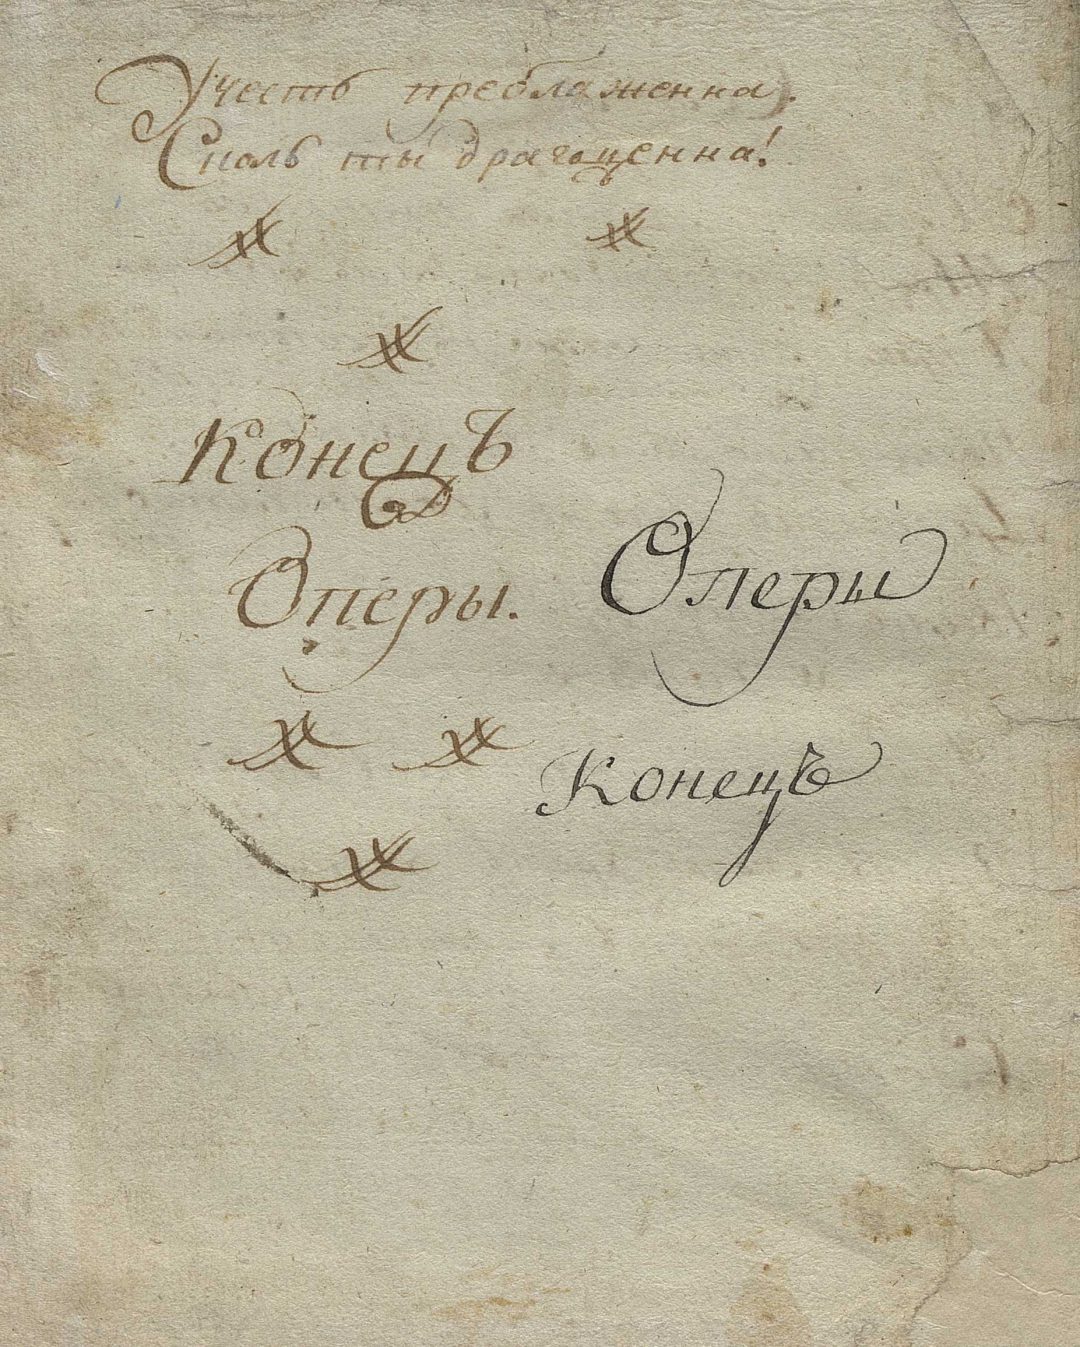 Учесть преблаженна,
Сколь ты драгоценна!
Конецъ
Оперы.
Оперы
Конецъ